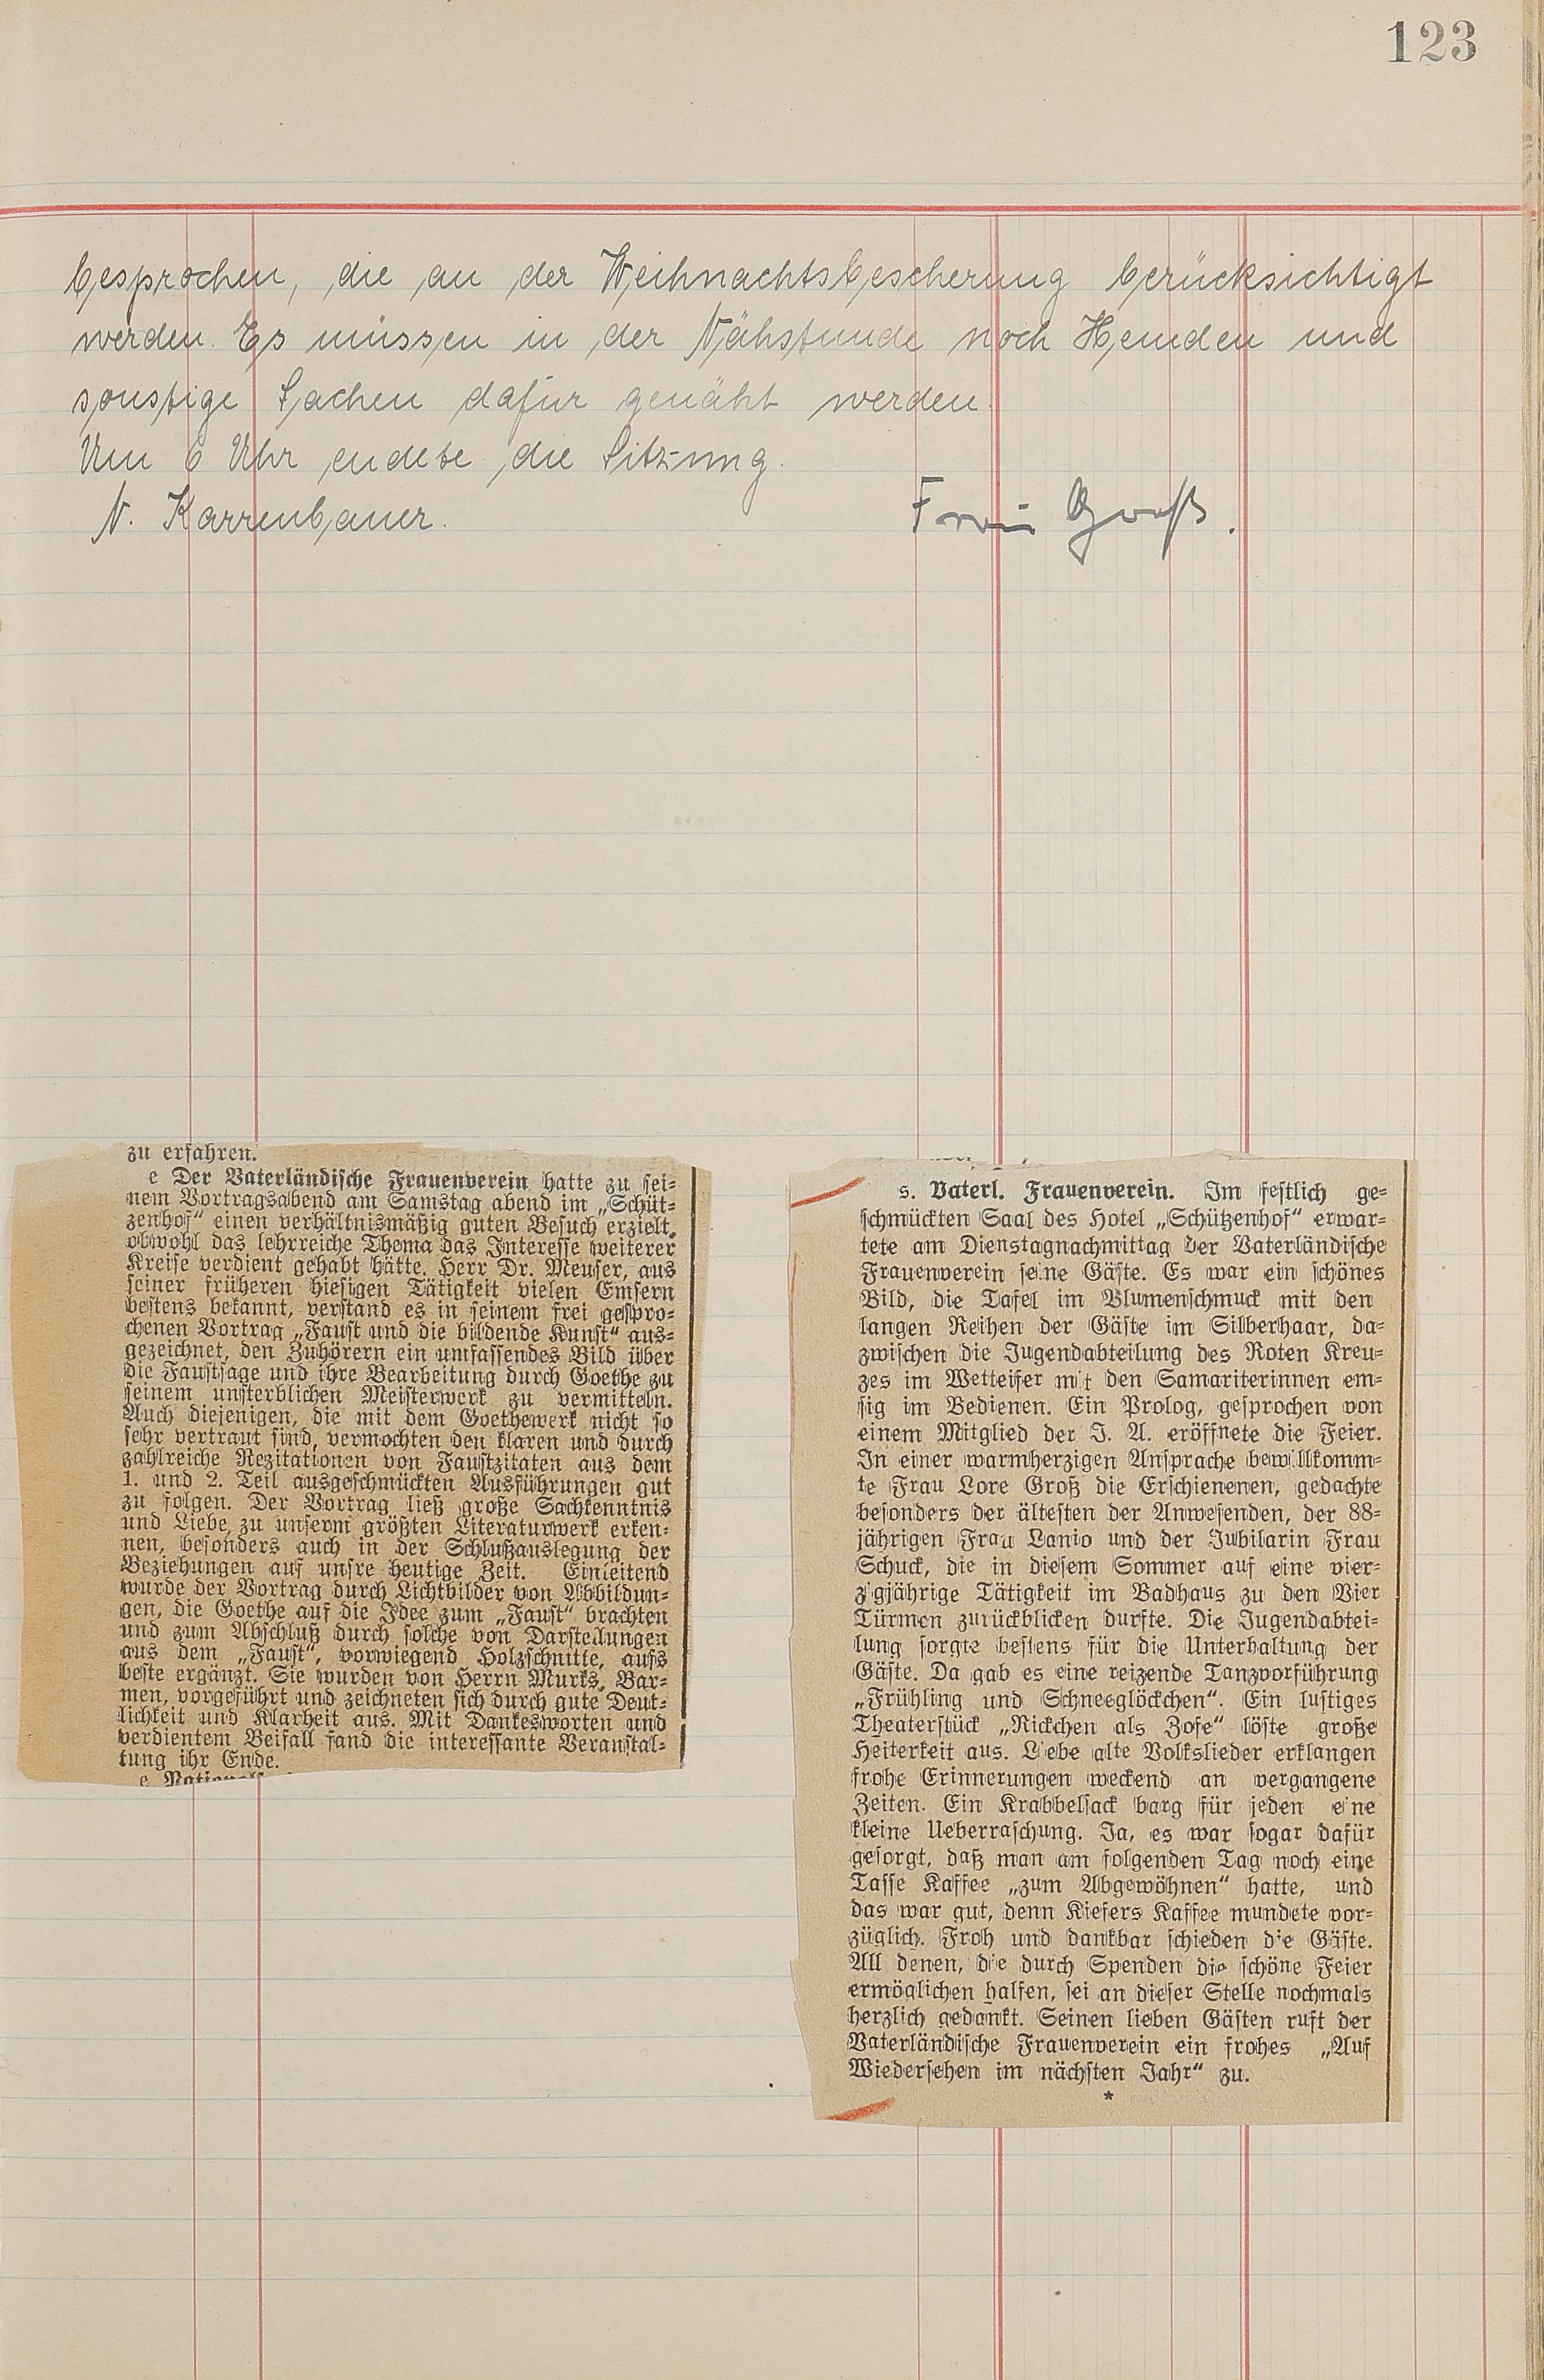 123
besprochen, die an der Weihnachtsbescherung berücksichtigt
werden. Es müssen in der Nähstunde noch Hemden und
sonstige Sachen dafür genäht werden.
Um 6 Uhr endete die Sitzung.
N. Karrenbauer.
Frau Groß.
zu erfahren.
e Der Vaterländische Frauenverein hatte zu sei-
nem Vortragsabend am Samstag abend im „Schüt-
zenhof“ einen verhältnismäßig guten Besuch erzielt,
obwohl das lehrreiche Thema das Interesse weiterer
Kreise verdient gehabt hätte. Herr Dr. Meuser, aus
seiner früheren hiesigen Tätigkeit vielen Emsern
bestens bekannt, verstand es in seinem frei gespro-
chenen Vortrag „Faust und die bildende Kunst“ aus-
gezeichnet, den Zuhörern ein umfassendes Bild über
die Faustsage und ihre Bearbeitung durch Goethe zu
seinem unsterblichen Meisterwerk zu vermitteln.
Auch diejenigen, die mit dem Goethewerk nicht so
sehr vertraut sind, vermochten den klaren und durch
zahlreiche Rezitationen von Faustzitaten aus dem
1. und 2. Teil ausgeschmückten Ausführungen gut
zu folgen. Der Vortrag ließ große Sachkenntnis
und Liebe zu unserm größten Literaturwerk erken-
nen, besonders auch in der Schlußauslegung der
Beziehungen auf unsre heutige Zeit. Einleitend
wurde der Vortrag durch Lichtbilder von Abbildun-
gen, die Goethe auf die Idee zum „Faust“ brachten
und zum Abschluß durch solche von Darstellungen
aus dem „Faust“, vorwiegend Holzschnitte, aufs
beste ergänzt. Sie wurden von Herrn Murks, Bar-
men, vorgeführt und zeichneten sich durch gute Deut-
lichkeit und Klarheit aus. Mit Dankesworten und
verdientem Beifall fand die interessante Veranstal-
tung ihr Ende.
s. Vaterl. Frauenverein. Im festlich ge-
schmückten Saal des Hotel „Schützenhof“ erwar-
tete am Dienstagnachmittag der Vaterländische
Frauenverein seine Gäste. Es war ein schönes
Bild, die Tafel im Blumenschmuck mit den
langen Reihen der Gäste im Silberhaar, da-
zwischen die Jugendabteilung des Roten Kreu-
zes im Wetteifer mit den Samariterinnen em-
sig im Bedienen. Ein Prolog, gesprochen von
einem Mitglied der J. A. eröffnete die Feier.
In einer warmherzigen Ansprache bewillkomm-
te Frau Lore Groß die Erschienenen, gedachte
besonders der ältesten der Anwesenden, der 88-
jährigen Frau Lanio und der Jubilarin Frau
Schuck, die in diesem Sommer auf eine vier-
zigjährige Tätigkeit im Badhaus zu den Vier
Türmen zurückblicken durfte. Die Jugendabtei-
lung sorgte bestens für die Unterhaltung der
Gäste. Da gab es eine reizende Tanzvorführung
„Frühling und Schneeglöckchen“. Ein lustiges
Theaterstück „Rickchen als Zofe“ löste große
Heiterkeit aus. Liebe alte Volkslieder erklangen
frohe Erinnerungen weckend an vergangene
Zeiten. Ein Krabbelsack barg für jeden eine
kleine Ueberraschung. Ja, es war sogar dafür
gesorgt, daß man am folgenden Tag noch eine
Tasse Kaffee „zum Abgewöhnen“ hatte, und
das war gut, denn Kiefers Kaffee mundete vor-
züglich. Froh und dankbar schieden die Gäste.
All denen, die durch Spenden die schöne Feier
ermöglichen halfen, sei an dieser Stelle nochmals
herzlich gedankt. Seinen lieben Gästen ruft der
Vaterländische Frauenverein ein frohes „Auf
Wiedersehen im nächsten Jahr“ zu.
*